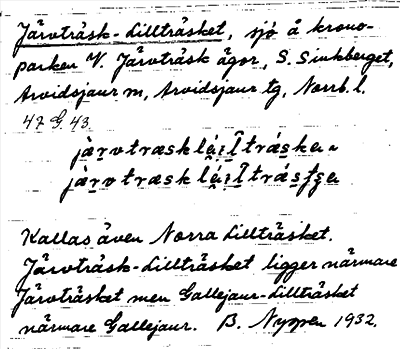 Järvträsk-Lillträsket, sjö å krono-
parken V. Järvträsk ägor, S. Sinkberget,
Arvidsjaur sn, Arvidsjaur tg, Norrb. l.
47 G. 43
Kallas även Norra Lillträsket.
Järvträsk-Lillträsket ligger närmare
Järvträsket men Gallejaur-Lillträsket
närmare Gallejaur. B. Nyppen 1932.